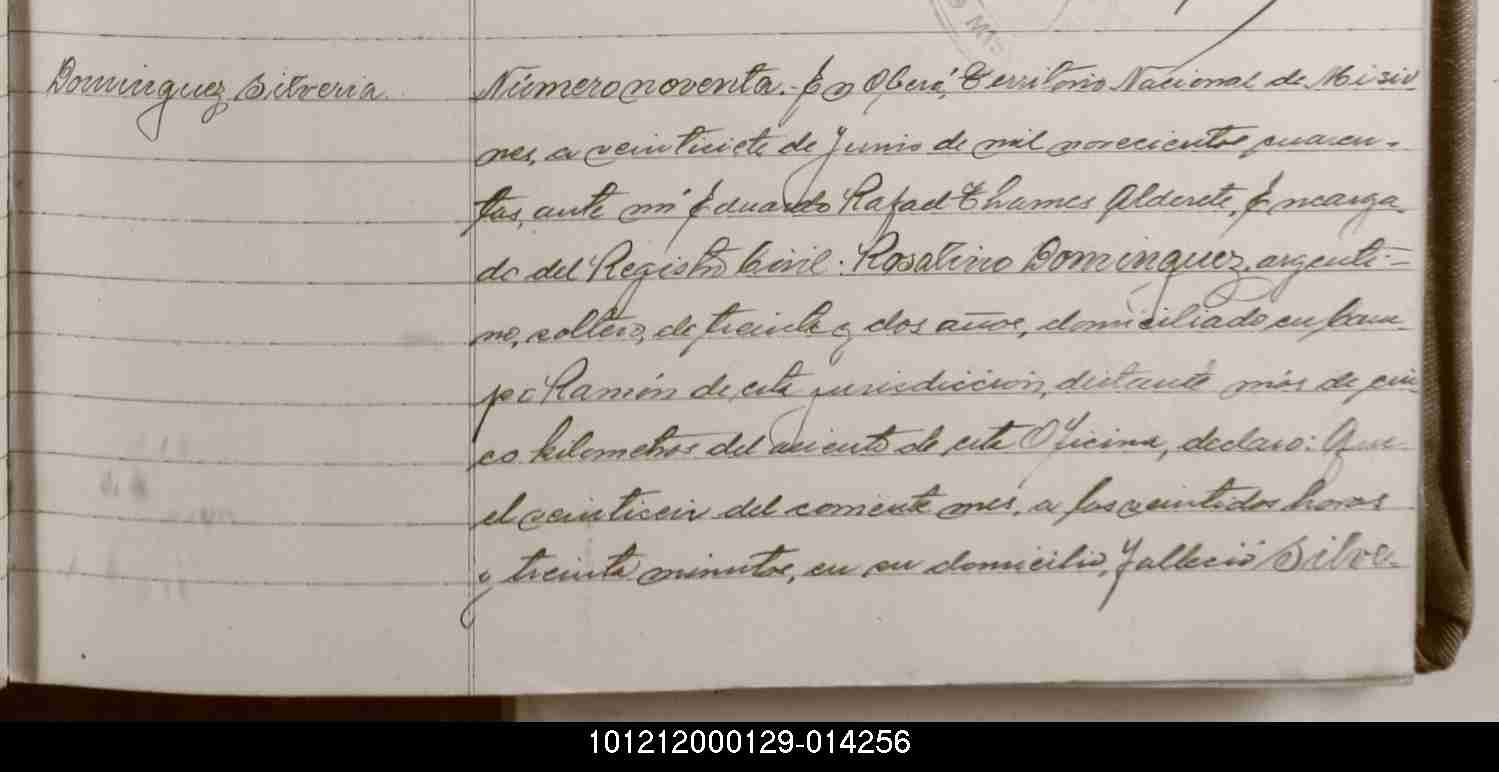 Dominguez, Silveria.
Número noventa.- En Oberá, Territorio Nacional de Misio
nes, a veintisiete de Junio de mil novecientos cuaren-
ta, ante mí Eduardo Rafael Thames Alderete, Encarga
do del Registro Civil: Rosalino Dominguez, argenti-
no, soltero, de treinta y dos años, domiciliado en Cam
po Ramón de esta jurisdicción, distante más de cin
co kilometros del asiento de esta Oficina, declaro: Que
el veintiseis del corriente mes, a las veintidos horas
y treinta minutos, en su domicilio, falleció Silve-
101212000129-014256